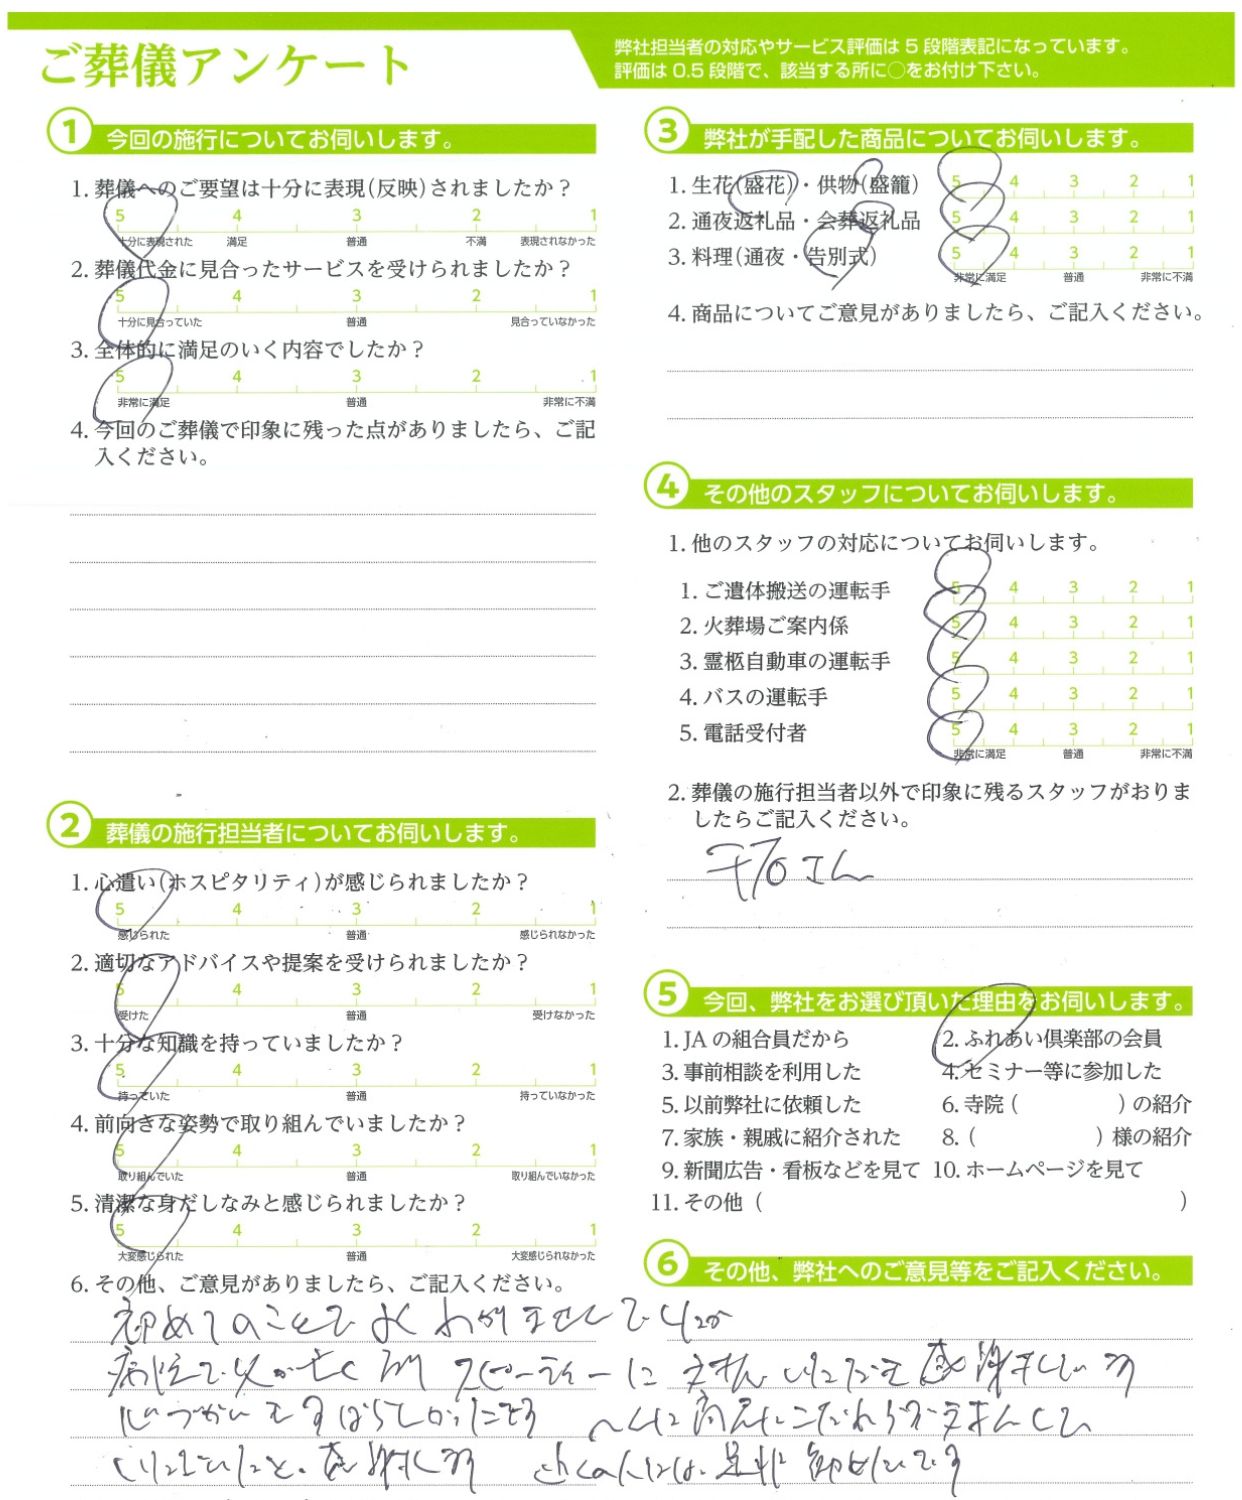 ご葬儀アンケート
弊社担当者の対応やサービス評価は 5 段階表記になっています。
評価は 0.5 段階で、該当する所に○をお付け下さい。
① 今回の施行についてお伺いします。
1. 葬儀へのご要望は十分に表現(反映)されましたか？
5 4 3 2 1
十分に表現された 満足 普通 不満 表現されなかった
2. 葬儀代金に見合ったサービスを受けられましたか？
5 4 3 2 1
十分に見合っていた 普通 見合っていなかった
3. 全体的に満足のいく内容でしたか？
5 4 3 2 1
非常に満足 普通 非常に不満
4. 今回のご葬儀で印象に残った点がありましたら、ご記
入ください。
② 葬儀の施行担当者についてお伺いします。
1. 心遣い(ホスピタリティ)が感じられましたか？
5 4 3 2 1
感じられた 普通 感じられなかった
2. 適切なアドバイスや提案を受けられましたか？
5 4 3 2 1
受けた 普通 受けなかった
3. 十分な知識を持っていましたか？
5 4 3 2 1
持っていた 普通 持っていなかった
4. 前向きな姿勢で取り組んでいましたか？
5 4 3 2 1
取り組んでいた 普通 取り組んでいなかった
5. 清潔な身だしなみと感じられましたか？
5 4 3 2 1
大変感じられた 普通 大変感じられなかった
6. その他、ご意見がありましたら、ご記入ください。
初めてのことでよくわかりませんでしたが
病院で父が亡くなり スピーディーに 対応 いただき 感謝しています
心づかいもすばらしかったです
感謝します 近くの人には、是非 勧めたいです
③ 弊社が手配した商品についてお伺いします。
1. 生花(盛花)・供物(盛籠) 5 4 3 2 1
2. 通夜返礼品・会葬返礼品 5 4 3 2 1
3. 料理(通夜・告別式) 5 4 3 2 1
非常に満足 普通 非常に不満
4. 商品についてご意見がありましたら、ご記入ください。
④ その他のスタッフについてお伺いします。
1. 他のスタッフの対応についてお伺いします。
1. ご遺体搬送の運転手 5 4 3 2 1
2. 火葬場ご案内係 5 4 3 2 1
3. 霊柩自動車の運転手 5 4 3 2 1
4. バスの運転手 5 4 3 2 1
5. 電話受付者 5 4 3 2 1
非常に満足 普通 非常に不満
2. 葬儀の施行担当者以外で印象に残るスタッフがおりま
したらご記入ください。
さん
⑤ 今回、弊社をお選び頂いた理由をお伺いします。
1. JA の組合員だから 2. ふれあい倶楽部の会員
3. 事前相談を利用した 4. セミナー等に参加した
5. 以前弊社に依頼した 6. 寺院 ( ) の紹介
7. 家族・親戚に紹介された 8. ( ) 様の紹介
9. 新聞広告・看板などを見て 10. ホームページを見て
11. その他 ( )
⑥ その他、弊社へのご意見等をご記入ください。